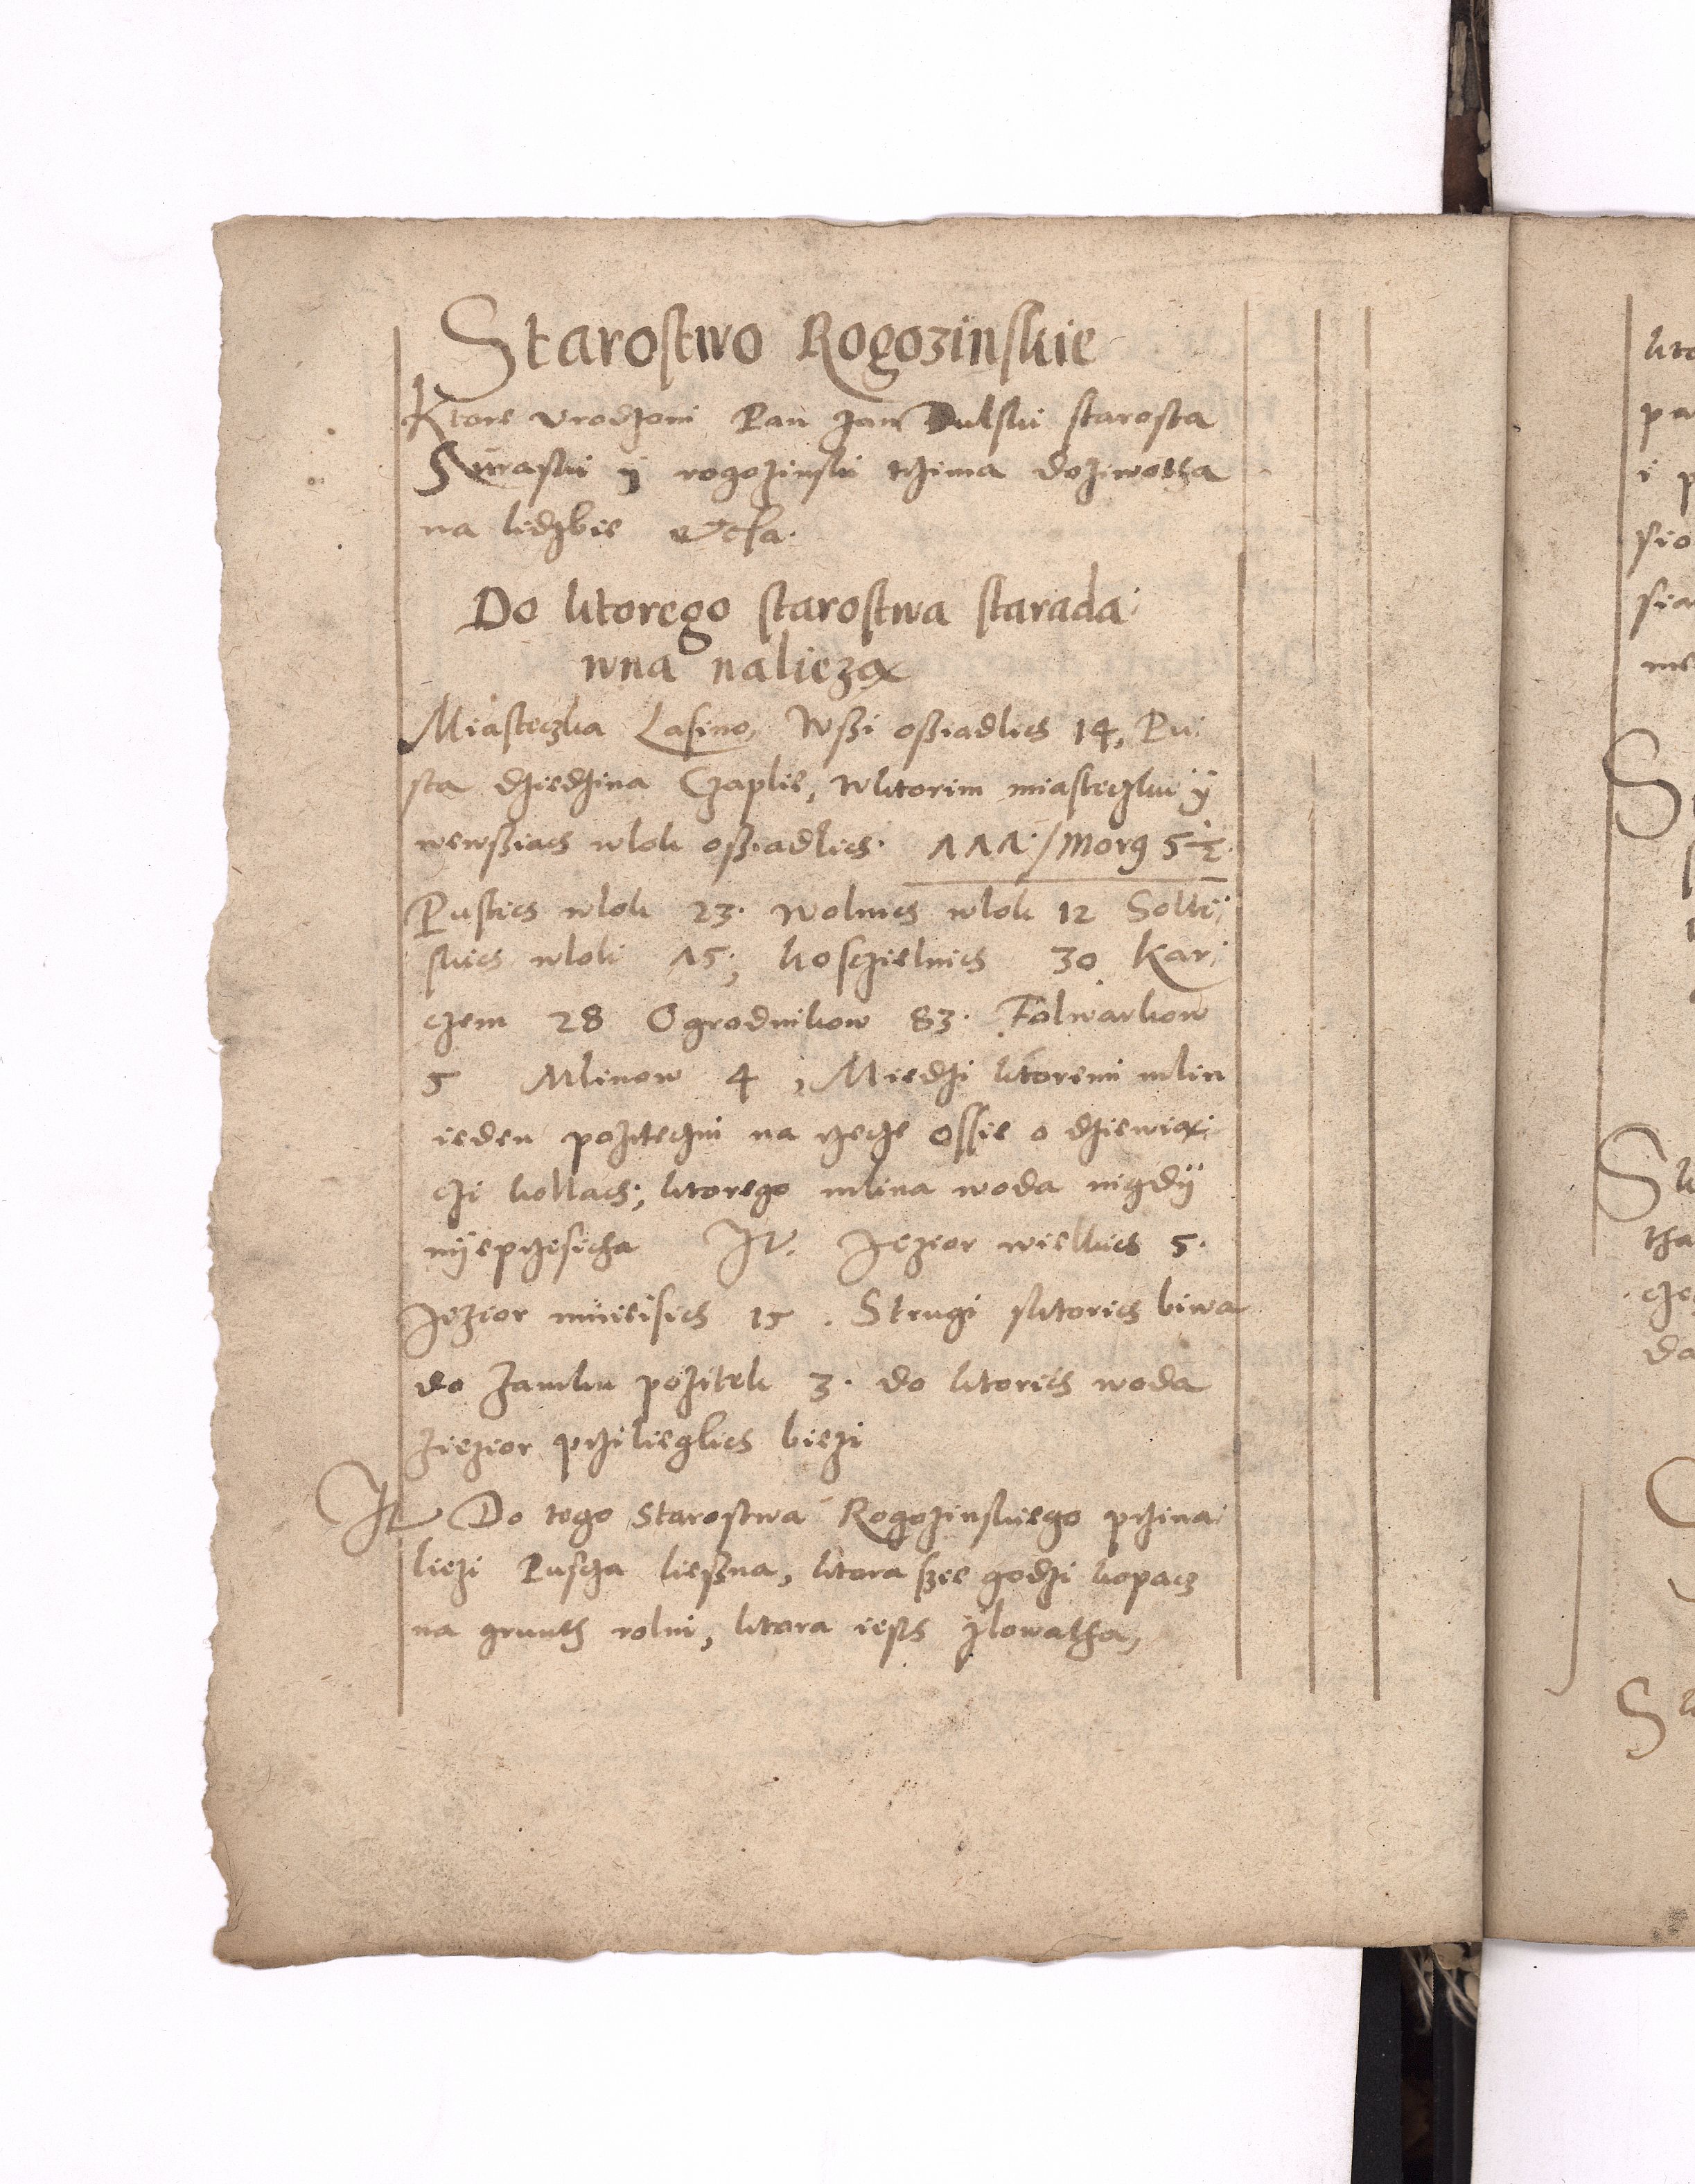 Starostwo Rogozinskie
Ktore vrodzoni Pan Jan Dulski starosta
Suraski y rogozinski trzima doziwotha
na liczbie etc
Do ktorego starostwa starada
wna naliezą
Miasteczka Lasino, Wßi oßiadlich 14, Pu
sta dziedzina Czaplie, Wktorim miasteczku ÿ
wewßiach wlok oßiadlich. 111 / Morg 5½
Pustich wlok 23. Wolnich wlok 12 Solti
skich wlok 15; kosczielnich 30 Kar
czem 28 Ogrodnikow 83. Folwarkow
5 Mlinow 4, Miedzi ktoremi mlin
ieden pozitezni na rzece Ossie o dziewią
czi kollach; ktorego mlina woda nigdÿ
nÿeprzesicha It. Jezior wielkich 5.
Jezior mnieisich 15. Strugi sktorich biwa
do Zamku pozitek 3. do ktorich woda
Ziezior przilieglich biezi
It Do tego Starostwa Rogozinskiego przina
liezi Puscza ließna, ktora szie godzi kopacz
na grunth rolni, ktora iesth